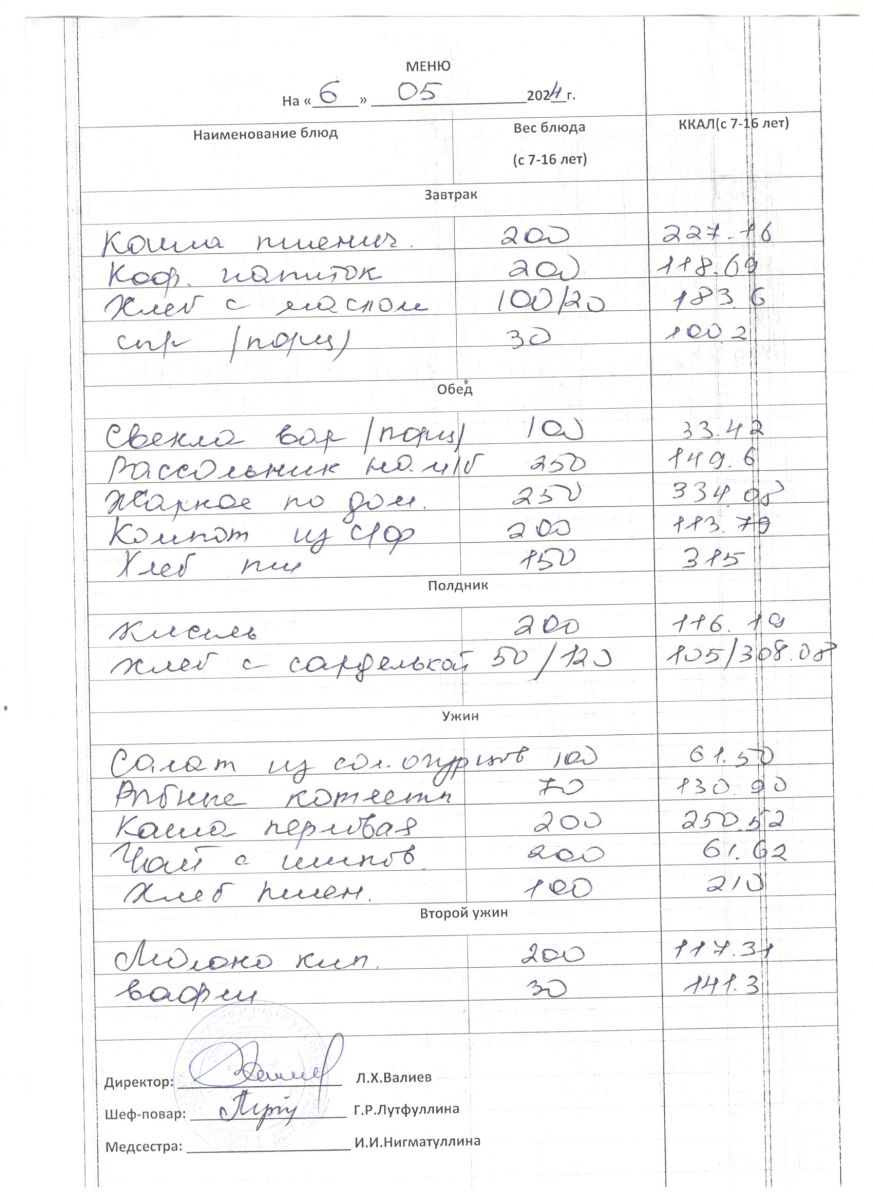 МЕНЮ
На «6» 05 2024 г.
Наименование блюд Вес блюда (с 7-16 лет) ККАЛ(с 7-16 лет)
Завтрак
Каша пшенич. 200 227.16
Коф. напиток 200 118.69
Хлеб с маслом 100/20 183.6
сыр (порц) 30 100.2
Обед
Свекла вар (порц) 100 33.42
Рассольник на м/б 250 149.6
Жаркое по дом. 250 334.08
Компот из с/ф 200 113.79
Хлеб пш 150 315
Полдник
Кисель 200 116.19
Хлеб с сарделькой 50/120 105/308.08
Ужин
Салат из сол.огурцов 100 61.50
Рыбные котлеты 70 130.90
Каша перловая 200 250.52
Чай с шипов 200 61.62
Хлеб пшен. 100 210
Второй ужин
Молоко кип. 200 117.31
вафли 30 141.3
Директор: Л.Х.Валиев
Шеф-повар: Г.Р.Лутфуллина
Медсестра: И.И.Нигматуллина